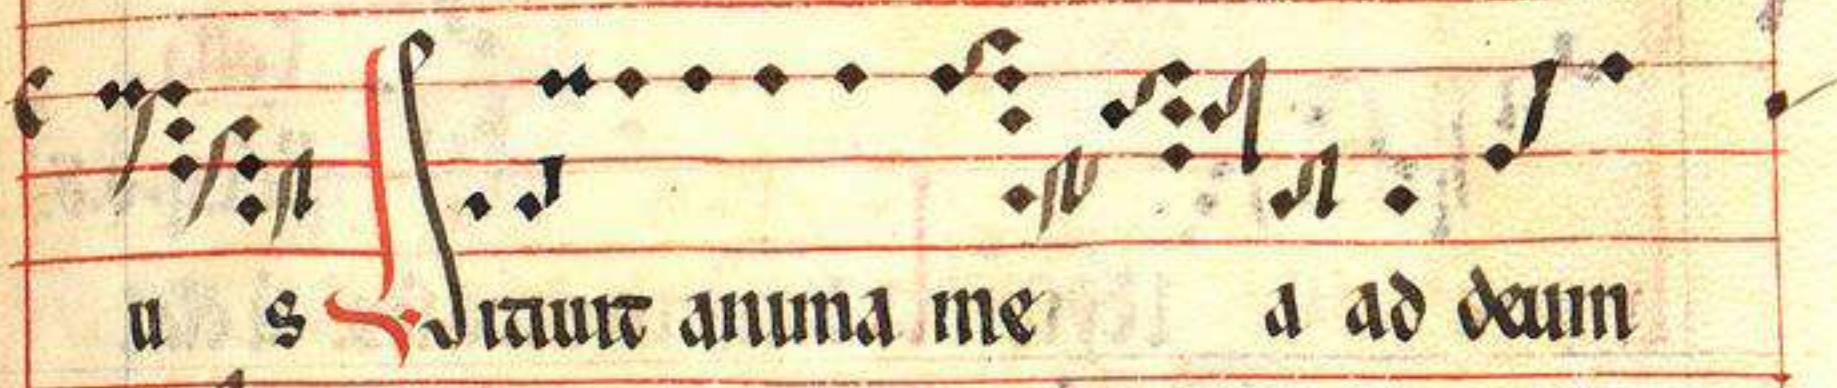 u s Sitiuit anima me a ad deum